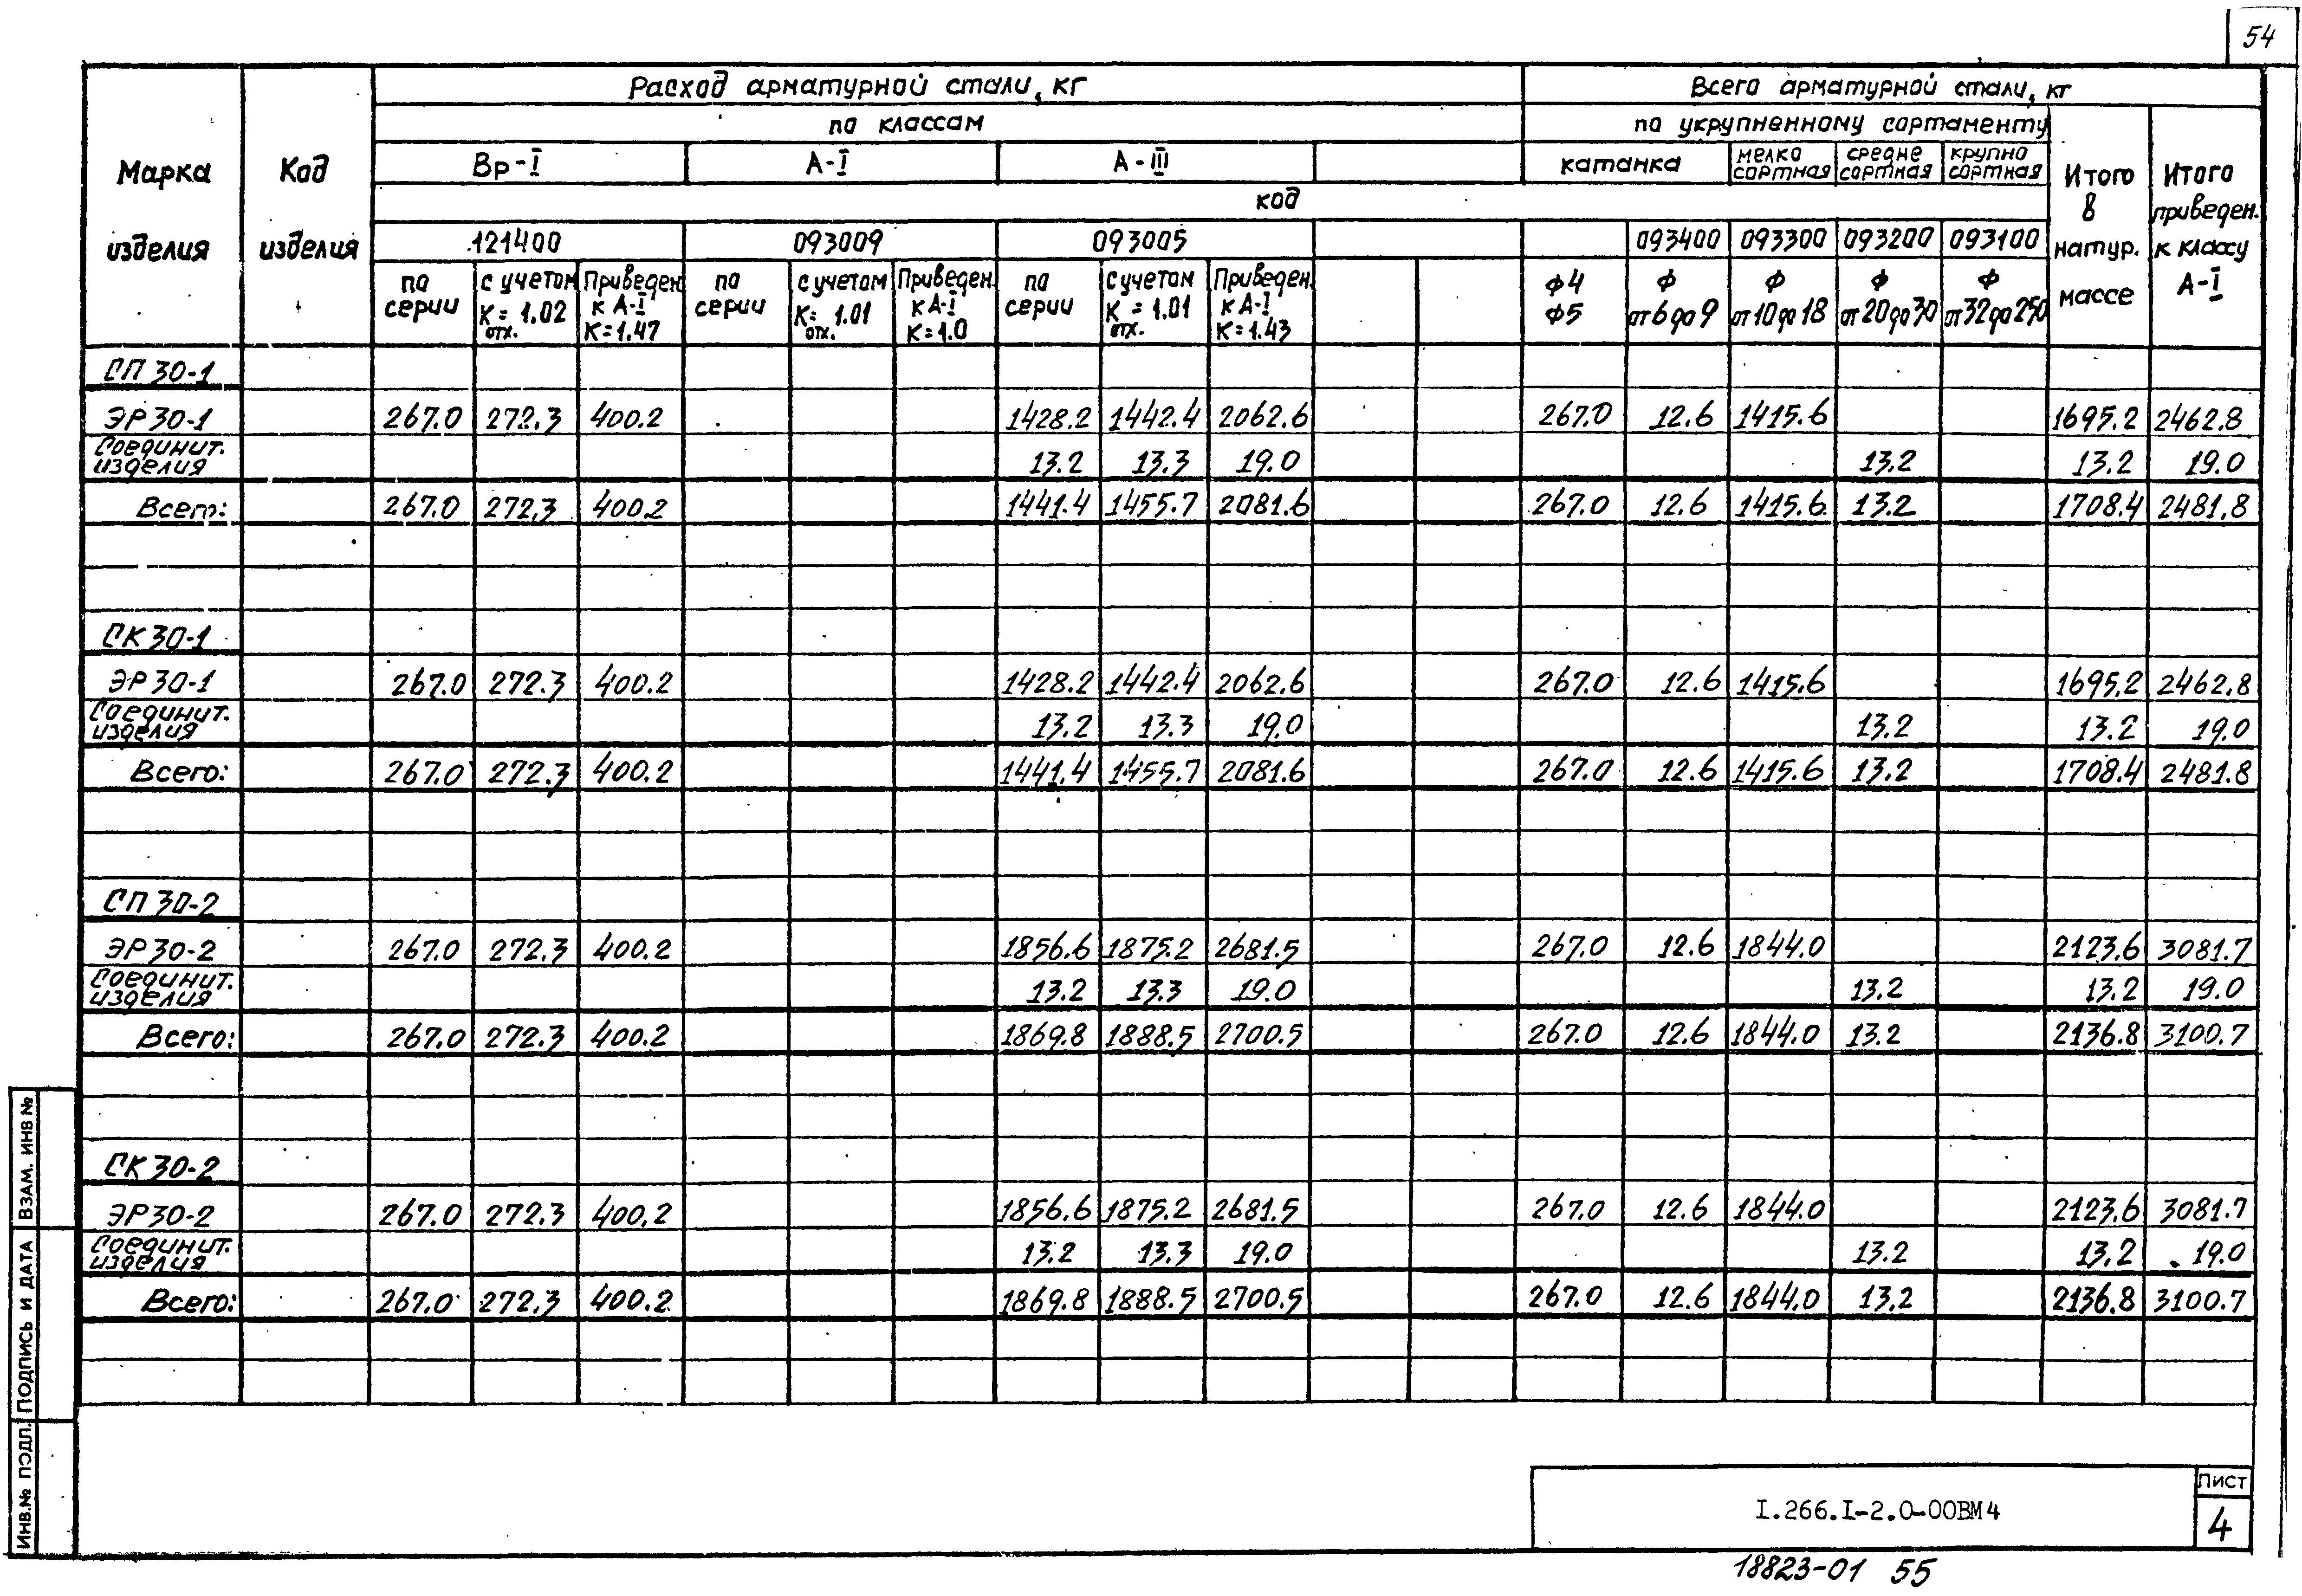 54
Расход арматурной стали, кг
Всего арматурной стали, кг
по классам
по укрупненному сортаменту
Марка изделия
Код изделия
Вр-I
А-I
А-III
катанка
мелко сортная
средне сортная
крупно сортная
Итого в натур. массе
Итого приведен. к классу А-I
код
121400 093009 093005 093400 093300 093200 093100
по серии
с учетом К отх. = 1.02
Приведен. к А-I К=1.47
по серии
с учетом К отх. = 1.01
Приведен. к А-I К=1.0
по серии
с учетом К отх. = 1.01
Приведен. к А-I К=1.43
ф4 ф5
ф от 6 до 9
ф от 10 до 18
ф от 20 до 30
ф от 32 до 250
СП 30-1
ЭР 30-1 267.0 272.3 400.2 1428.2 1442.4 2062.6 267.0 12.6 1415.6 1695.2 2462.8
Соединит. изделия 13.2 13.3 19.0 13.2 13.2 19.0
Всего: 267.0 272.3 400.2 1441.4 1455.7 2081.6 267.0 12.6 1415.6 13.2 1708.4 2481.8
СК 30-1
ЭР 30-1 267.0 272.3 400.2 1428.2 1442.4 2062.6 267.0 12.6 1415.6 1695.2 2462.8
Соединит. изделия 13.2 13.3 19.0 13.2 13.2 19.0
Всего: 267.0 272.3 400.2 1441.4 1455.7 2081.6 267.0 12.6 1415.6 13.2 1708.4 2481.8
СП 30-2
ЭР 30-2 267.0 272.3 400.2 1856.6 1875.2 2681.5 267.0 12.6 1844.0 2123.6 3081.7
Соединит. изделия 13.2 13.3 19.0 13.2 13.2 19.0
Всего: 267.0 272.3 400.2 1869.8 1888.5 2700.5 267.0 12.6 1844.0 13.2 2136.8 3100.7
СК 30-2
ЭР 30-2 267.0 272.3 400.2 1856.6 1875.2 2681.5 267.0 12.6 1844.0 2123.6 3081.7
Соединит. изделия 13.2 13.3 19.0 13.2 13.2 19.0
Всего: 267.0 272.3 400.2 1869.8 1888.5 2700.5 267.0 12.6 1844.0 13.2 2136.8 3100.7
ИНВ.№ ПОДЛ. ПОДПИСЬ И ДАТА ВЗАМ. ИНВ №
I.266.I-2.0-00ВМ4
Лист
4
18823-01 55